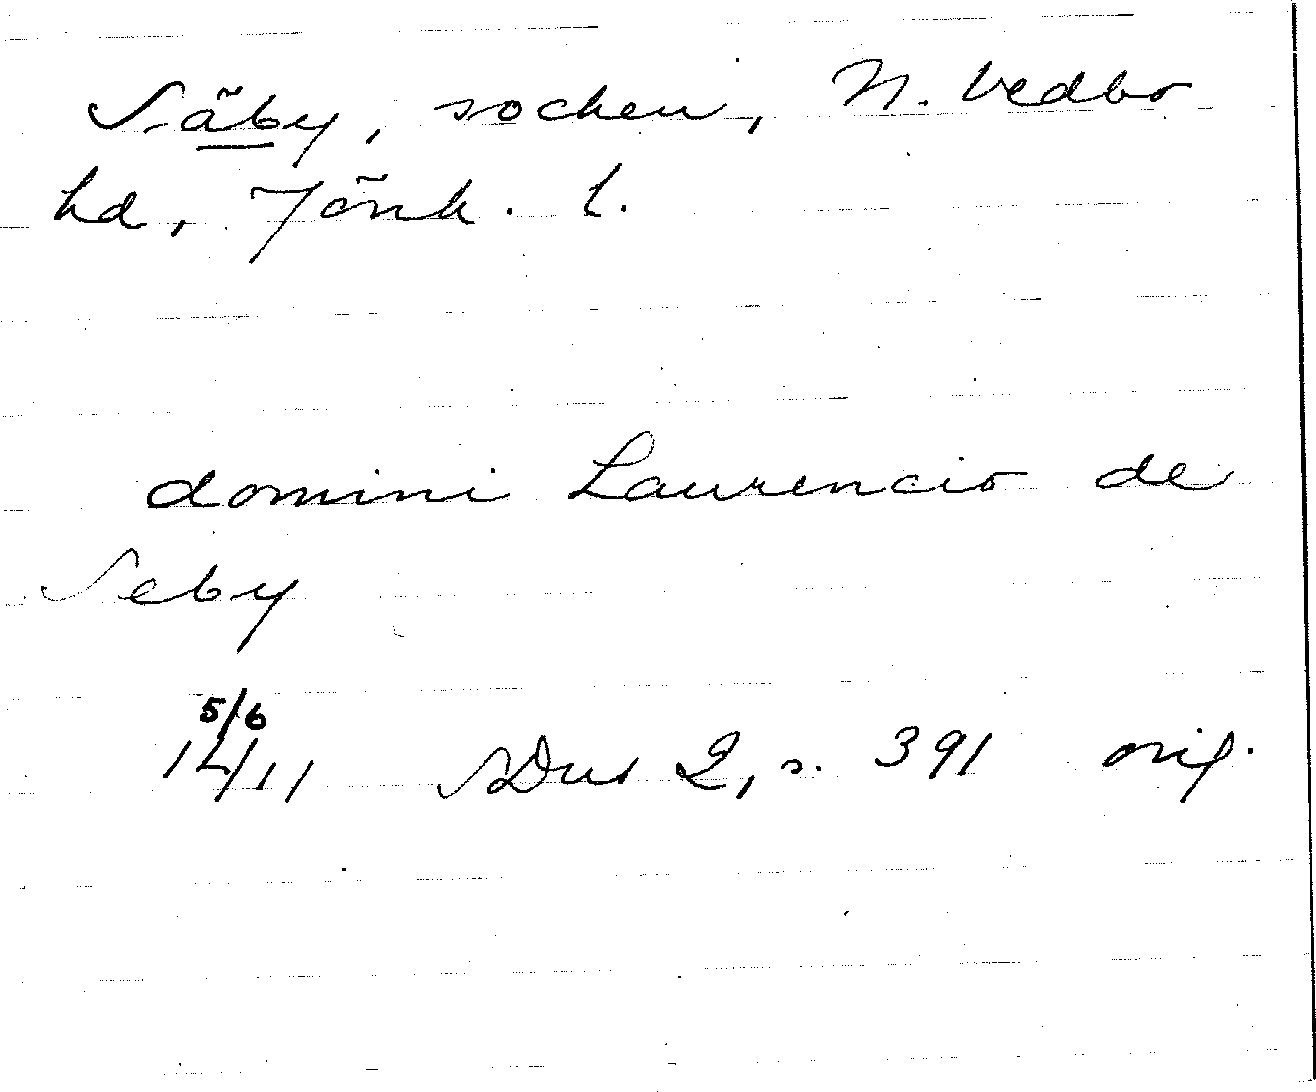 Säby, socken, N. Vedbo
hd, Jönk. l.
domini Laurencio de
Seby
5/6
14/11 SDns 2, s. 391 orig.